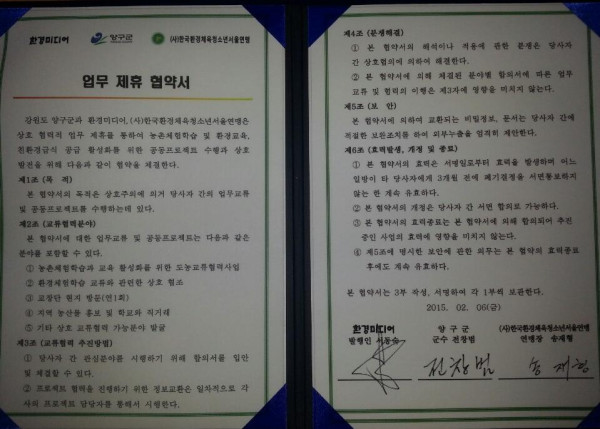 환경미디어 양구군 (사)한국환경체육청소년서울연맹
업무 제휴 협약서
강원도 양구군과 환경미디어, (사)한국환경체육청소년서울연맹은
상호 협력적 업무 제휴를 통하여 농촌체험학습 및 환경교육,
친환경급식 공급 활성화를 위한 공동프로젝트 수행과 상호
발전을 위해 다음과 같이 협약을 체결한다.
제1조 (목 적)
본 협약서의 목적은 상호주의에 의거 당사자 간의 업무교류
및 공동프로젝트를 수행하는데 있다.
제2조 (교류협력분야)
본 협약서에 대한 업무교류 및 공동프로젝트는 다음과 같은
분야를 포함할 수 있다.
① 농촌체험학습과 교육 활성화를 위한 도농교류협력사업
② 환경체험학습 교류와 관련한 상호 협조
③ 교장단 현지 방문(연1회)
④ 지역 농산물 홍보 및 학교와 직거래
⑤ 기타 상호 교류협력 가능분야 발굴
제3조 (교류협력 추진방법)
① 당사자 간 관심분야를 시행하기 위해 합의서를 입안
및 체결할 수 있다.
② 프로젝트 협력을 진행하기 위한 정보교환은 일차적으로 각
사의 프로젝트 담당자를 통해서 시행한다.
제4조 (분쟁해결)
① 본 협약서의 해석이나 적용에 관한 분쟁은 당사자
간 상호협의에 의하여 해결한다.
② 본 협약서에 의해 체결된 분야별 합의서에 따른 업무
교류 및 협력의 이행은 제3자에 영향을 미치지 않는다.
제5조 (보 안)
본 협약서에 의하여 교환되는 비밀정보, 문서는 당사자 간에
적절한 보안조치를 하여 외부누출을 엄격히 제한한다.
제6조 (효력발생, 개정 및 종료)
① 본 협약서의 효력은 서명일로부터 효력을 발생하며 어느
일방이 타 당사자에게 3개월 전에 폐기결정을 서면통보하지
않는 한 계속 유효하다.
② 본 협약서의 개정은 당사자 간 서면 합의로 가능하다.
③ 본 협약서의 효력종료는 본 협약서에 의해 합의되어 추진
중인 사업의 효력에 영향을 미치지 않는다.
④ 제5조에 명시한 보안에 관한 의무는 본 협약의 효력종료
후에도 계속 유효하다.
본 협약서는 3부 작성, 서명하여 각 1부씩 보관한다.
2015. 02. 06(금)
환경미디어 양 구 군 (사)한국환경체육청소년서울연맹
발행인 서동숙 군수 전창범 연맹장 송재형
전창범 송재형